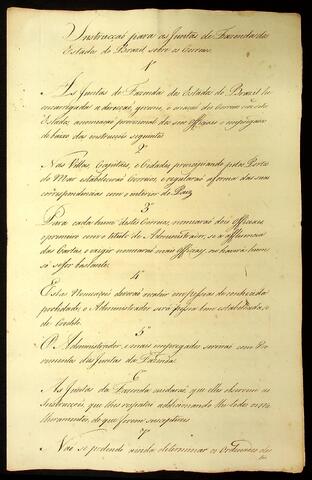 Instrucçaõ para as Juntas de Fazenda dos
Estados do Brazil, sobre os Correios.
1º
As Juntas de Fazenda dos Estados do Brazil
encarregadas a direcçaõ, governo, e
Estados, a nomeaçaõ provisional dos seus Officiaes e empregados
debaixo das instrucçoẽs seguintes
2º
Nas Villas, Capitaes, e Cidades, principiando pelos Portos
do Mar estabeleceraõ Correios, e regularaõ a forma das suas
correspondencias com o interior do Paiz
3º
Para cada hum destes Correios nomearaõ dois Officiaes
o primeiro com o titulo de Administrador, se a affluencia
das Cartas o exigir nomearaõ mais Officiaes, ou hum
só se for bastante.
4º
Estas Nomeaçoẽs deveraõ recahir em pessoas de conhecida
probidade, e o Administrador será pessoa bem estabelecida, e
de Credito.
5º
O Administrador, e mais empregados serviraõ com Pro-
vimentos das Juntas da Fazenda.
6
As Juntas da Fazenda cuidaraõ, que elles observem as
Instrucçoẽs, que lhes respeitaõ addicionando-lhes todos os me-
lhoramentos, de que forem susceptiveis
7º
Naõ se podendo ainda determinar os Ordenados dos